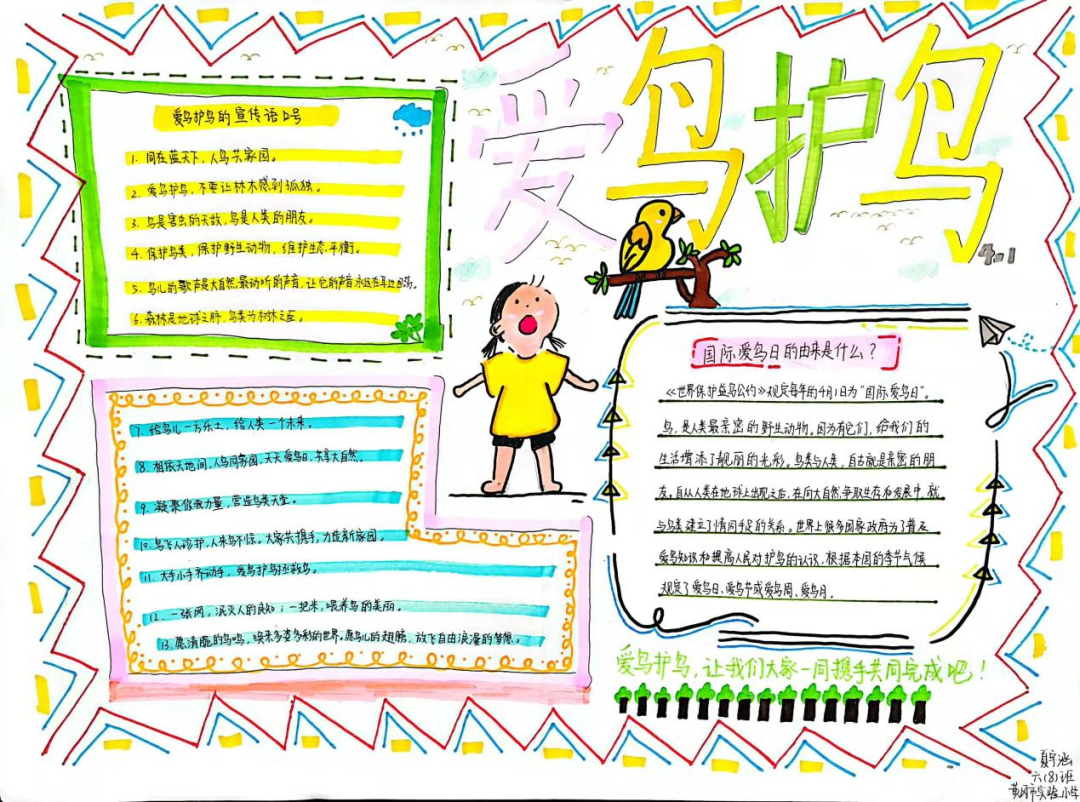 爱鸟护鸟
4.1
爱鸟护鸟的宣传语口号
1. 同在蓝天下，人鸟共家园。
2. 爱鸟护鸟，不要让林木感到孤独。
3. 鸟是害虫的天敌，鸟是人类的朋友。
4. 保护鸟类，保护野生动物，维护生态平衡。
5. 鸟儿的歌声是大自然最动听的声音，让它的声音永远在耳边回荡。
6. 森林是地球之肺，鸟类为树林之
7. 给鸟儿一方乐土，给人类一个未来。
8. 相依天地间，人鸟同家园，天天爱鸟日，共享大自然。
9. 凝聚你我力量，营造鸟类天堂。
10. 鸟飞人珍护，人来鸟不惊。大家共携手，力造新家园。
11. 大手小手齐动手，爱鸟护鸟拯救鸟。
12. 一张网，泯灭人的良知；一把米，喂养鸟的美丽。
13. 愿清脆的鸟鸣，唤来多姿多彩的世界。愿鸟儿的翅膀，放飞自由浪漫的梦想。
国际爱鸟日的由来是什么？
《世界保护益鸟公约》规定每年的4月1日为“国际爱鸟日”。
鸟，是人类最亲密的野生动物。因为有它们，给我们的
生活增添了靓丽的光彩。鸟类与人类，自古就是亲密的朋
友。自从人类在地球上出现之后，在向大自然争取生存和发展中，就
与鸟类建立了情同手足的关系。世界上很多国家政府为了普及
爱鸟知识和提高人民对护鸟的认识，根据本国的季节气候
规定了爱鸟日、爱鸟节或爱鸟周、爱鸟月。
爱鸟护鸟，让我们大家一同携手共同完成吧！
夏宇涵
六(8)班
实验小学